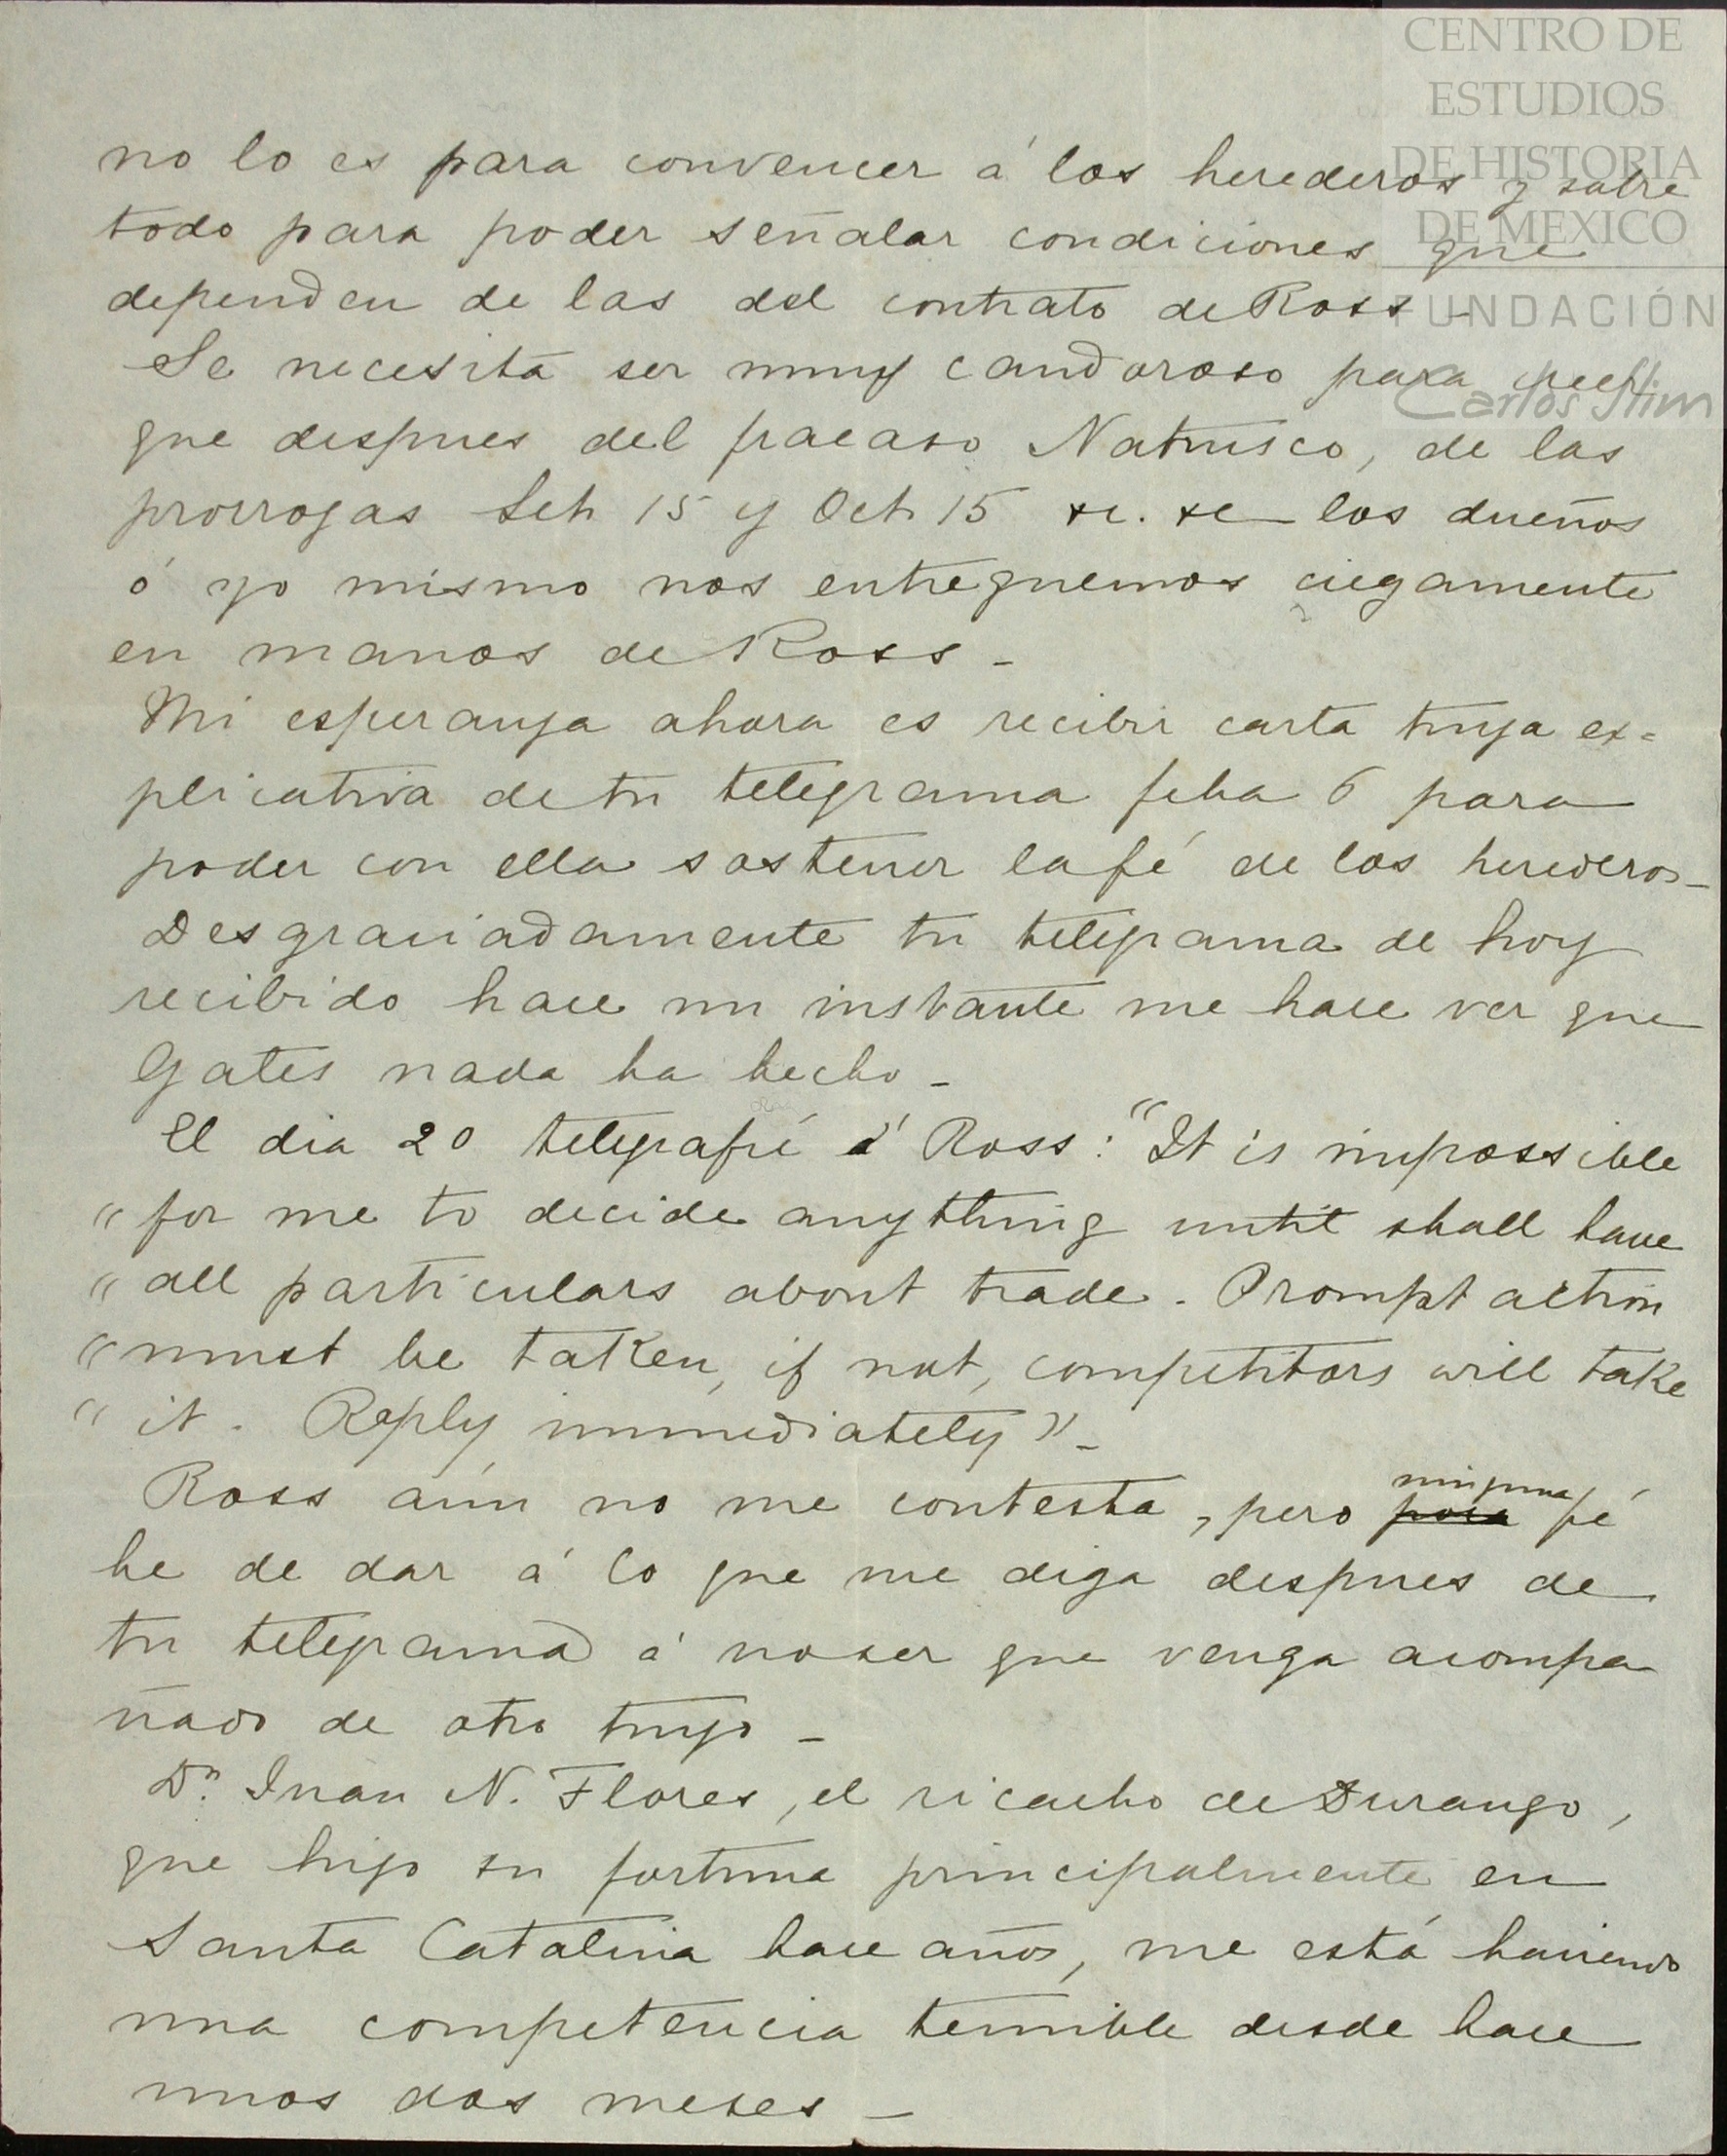 CENTRO DE
ESTUDIOS
DE HISTORIA
DE MEXICO
FUNDACIÓN
Carlos Slim
no lo es para convencer á los herederos y sobre
todo para poder señalar condiciones que
dependen de las del contrato de Ross –
Se necesita ser muy candoroso para creer
que despues del fracaso Natusco, de las
prorrogas Set 15 y Oct 15 &c. &c los dueños
ó yo mismo nos entreguemos ciegamente
en manos de Ross –
Mi esperanza ahora es recibir carta tuya ex=
plicativa de tu telegrama fcha 6 para
poder con ella sostener la fé de los herederos –
Desgraciadamente tu telegrama de hoy
recibido hace un instante me hace ver que
Gates nada ha hecho –
El dia 20 telegrafié á Ross: "It is impossible
" for me to decide anything until shall have
" all particulars about trade. Prompt action
" must be taken, if not, competitors will take
" it. Reply immediately" –
Ross aún no me contesta, pero poca ninguna fé
he de dar á lo que me diga despues de
tu telegrama á no ser que venga acompa
ñado de otro tuyo –
Dn. Juan N. Flores, el ricacho de Durango,
que hizo su fortuna principalmente en
Santa Catalina hace años, me está haciendo
una competencia terrible desde hace
unos dos meses –